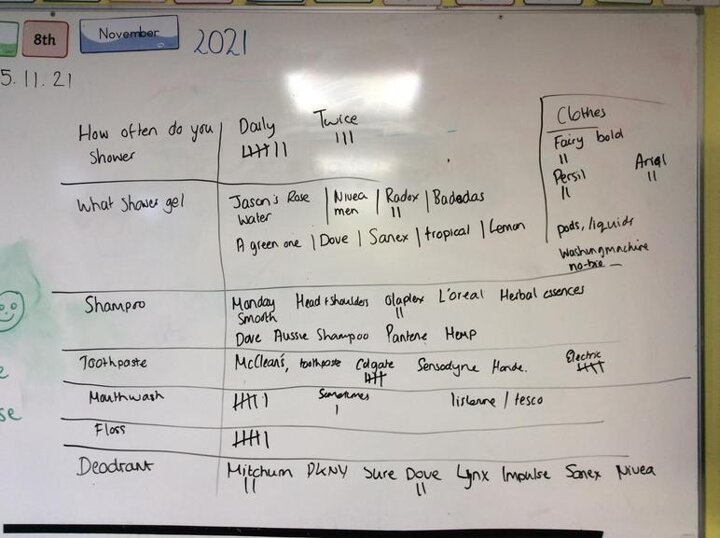 8th
November
2021
5.11.21
How often do you Shower
Daily
Twice
What shower gel
Jason's Rose Water | Nivea men | Radox | Badedas
A green one | Dove | Sanex | tropical | Lemon
Shampoo
Monday Smooth Head + Shoulders Olaplex L'oreal Herbal essences
Dove Aussie Shampoo Pantene Hemp
Toothpaste
McClean's, toothpaste Colgate Sensodyne Electric
Mouthwash
Sometimes
/ tesco
Floss
Deodrant
Mitchum DKNY Sure Dove Lynx Impulse Sanex Nivea
Clothes
Fairy bold
Persil
Arial
pods, liquids
Washingmachine
no-bio